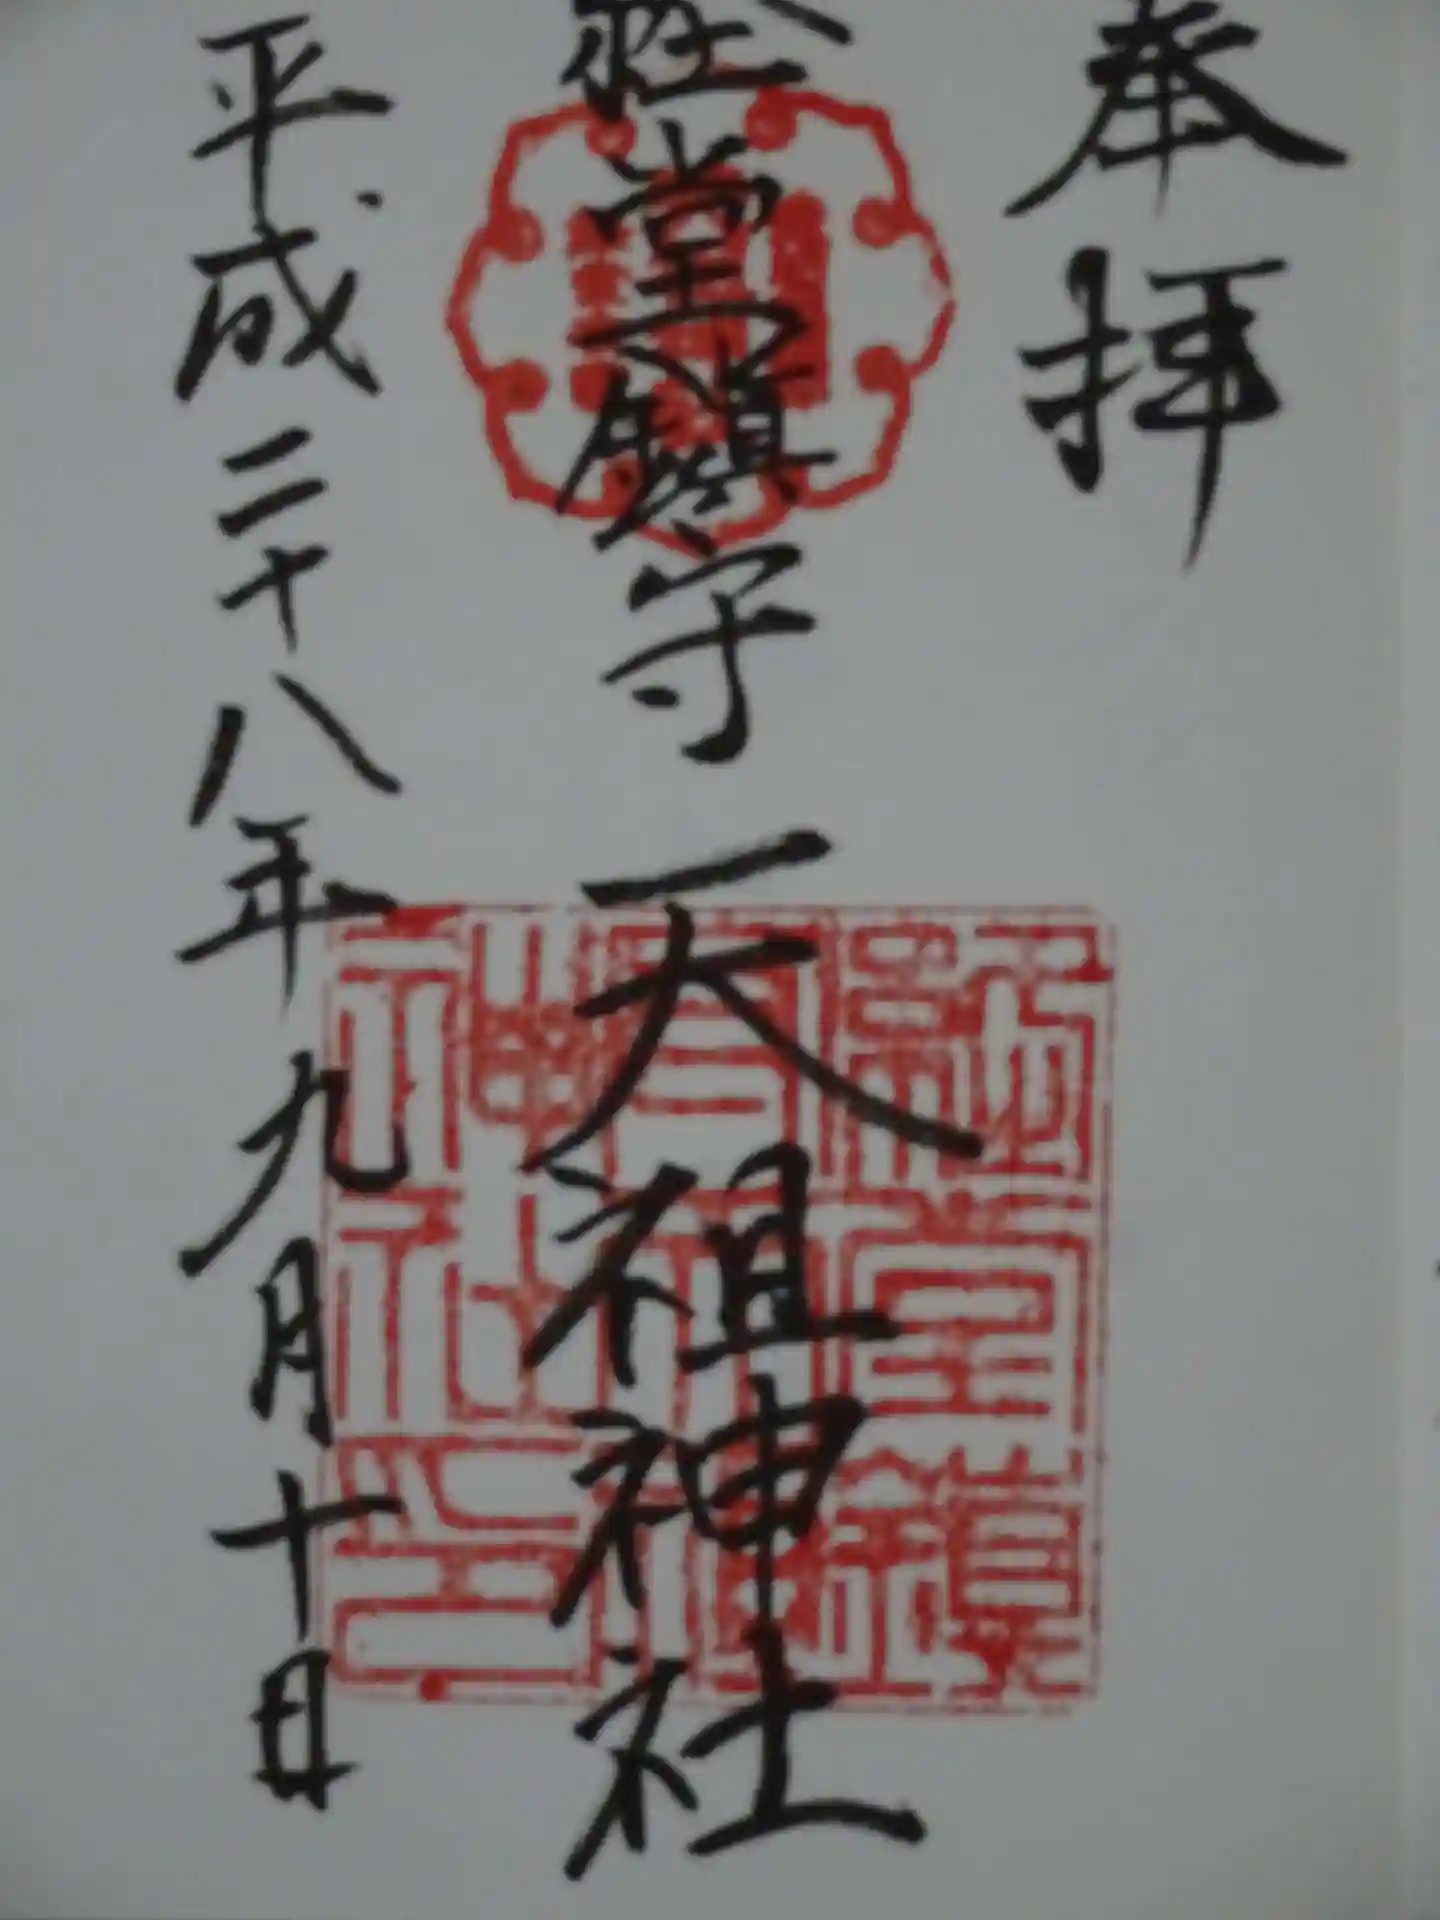 奉拝
経堂鎮守 天祖神社
平成二十八年九月十日